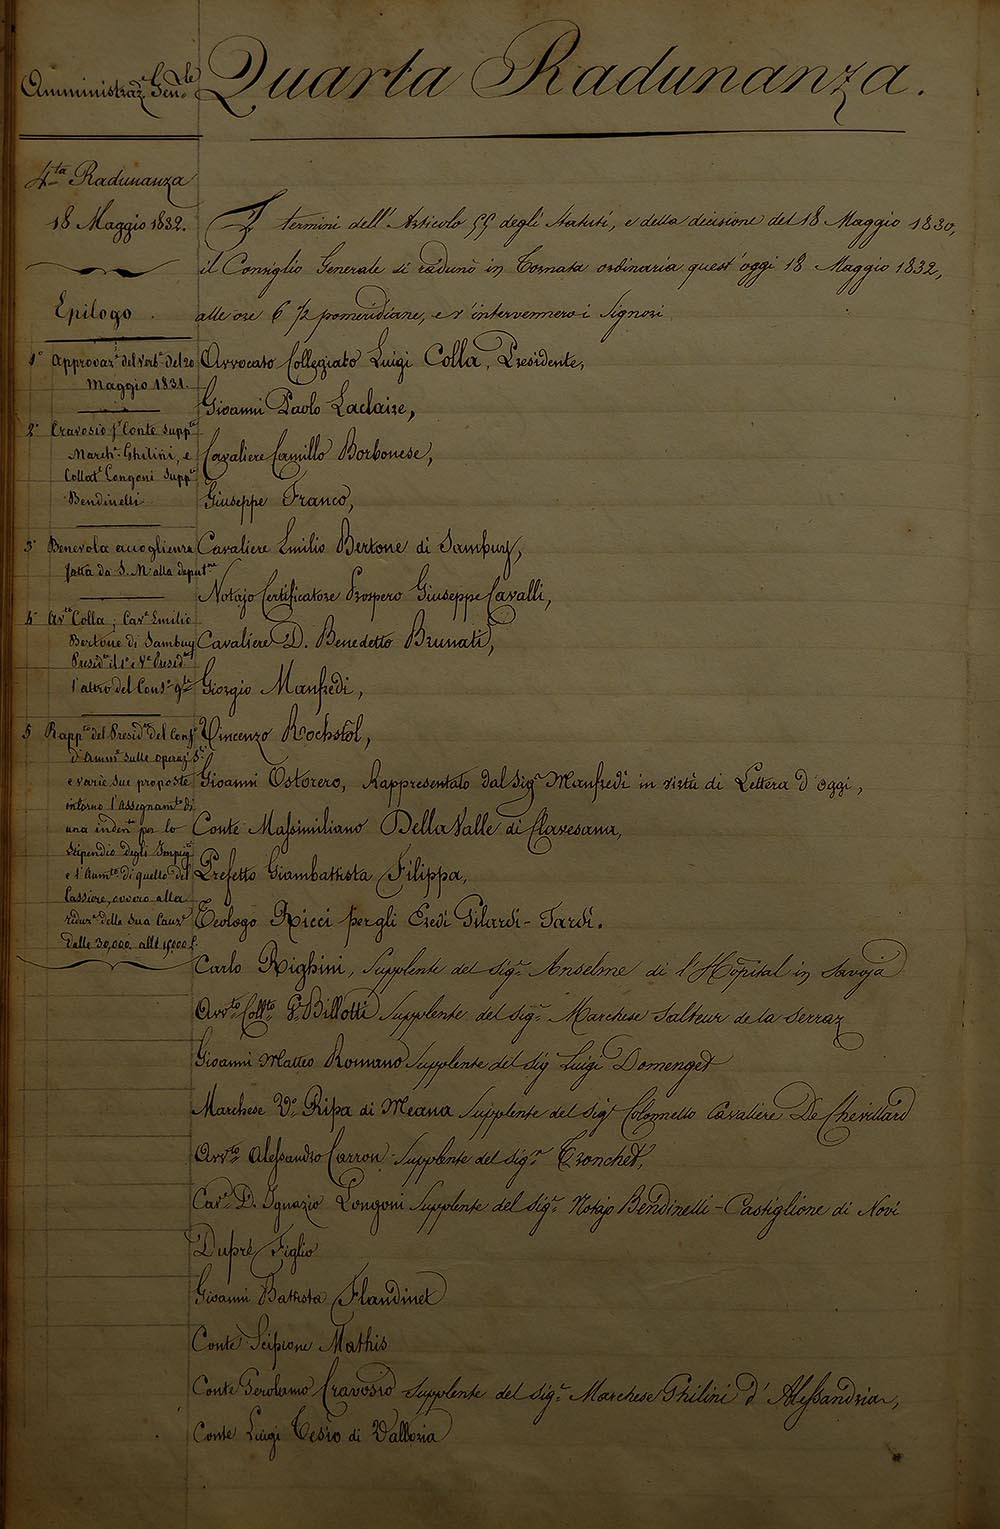 Amministraz.e Gen.le
Quarta Radunanza.
4.ta Radunanza
18 Maggio 1832.
Epilogo.
1° Approvaz.e del Verb.e del 20
Maggio 1831.
2° Cravosio f.r Conte supp.te
March.e Ghilini, e
Collat.e Longoni supp.te
Bendinelli
3° Benevola accoglienza
fatta da S. M. alla deput.ne
4° Av.to Colla; Cav.e Emilio
Bertone di Sambuy
Presid.te il 1° e V.e Presid.te
l'altro del Cons.o g.le
5 Rapp.to del Presid.te del Cons.o
d'Amm.e sulle operaz.i
e varie sue proposte
intorno l'Assegnam.to di
una inden.tà per lo
Stipendio degli Impieg.ti
e l'Aum.to di quello del
Cassiere, ovvero alla
riduz.e della sua Cauz.e
dalle 30,000. alle 15,000 £.
I termini dell'Articolo 55 degli Statuti, e della decisione del 18 Maggio 1830,
il Consiglio Generale si radunò in Tornata ordinaria quest'oggi 18 Maggio 1832,
alle ore 6 1/2 pomeridiane, e v'intervennero i Signori
Avvocato Collegiato Luigi Colla, Presidente,
Gioanni Paolo Laclaire,
Cavaliere Camillo Borbonese,
Giuseppe Franco,
Cavaliere Emilio Bertone di Sambuy,
Notajo Certificatore Prospero Giuseppe Cavalli,
Cavaliere D. Benedetto Brunati,
Giorgio Manfredi,
Vincenzo Rochstol,
Gioanni Ostorero, Rappresentato dal Sig.r Manfredi in virtù di Lettera d'oggi,
Conte Massimiliano Della Valle di Clavesana,
Prefetto Giambattista Filippa,
Teologo Ricci per gli Eredi Pilardi-Tardi.
Carlo Righini, Supplente del Sig.r Anselme di l'Hôpital in Savoja
Avv.to Coll.to G. Billotti Supplente del Sig.r Marchese Salteur de la Serraz
Gioanni Matteo Romano Supplente del Sig Luigi Domenget
Marchese V.o Ripa di Meana Supplente del Sig.r Colonnello Cavaliere De Chevillard
Avv.to Alessandro Carron Supplente del Sig.r Tronchet,
Cav.e D. Ignazio Longoni Supplente del Sig.r Notajo Bendinelli-Castiglione di Novi
Dupré Figlio
Gioanni Battista Flandinet
Conte Scipione Mathis
Conte Gerolamo Cravosio Supplente del Sig.r Marchese Ghilini d'Alessandria,
Conte Luigi Cesio di Valloria